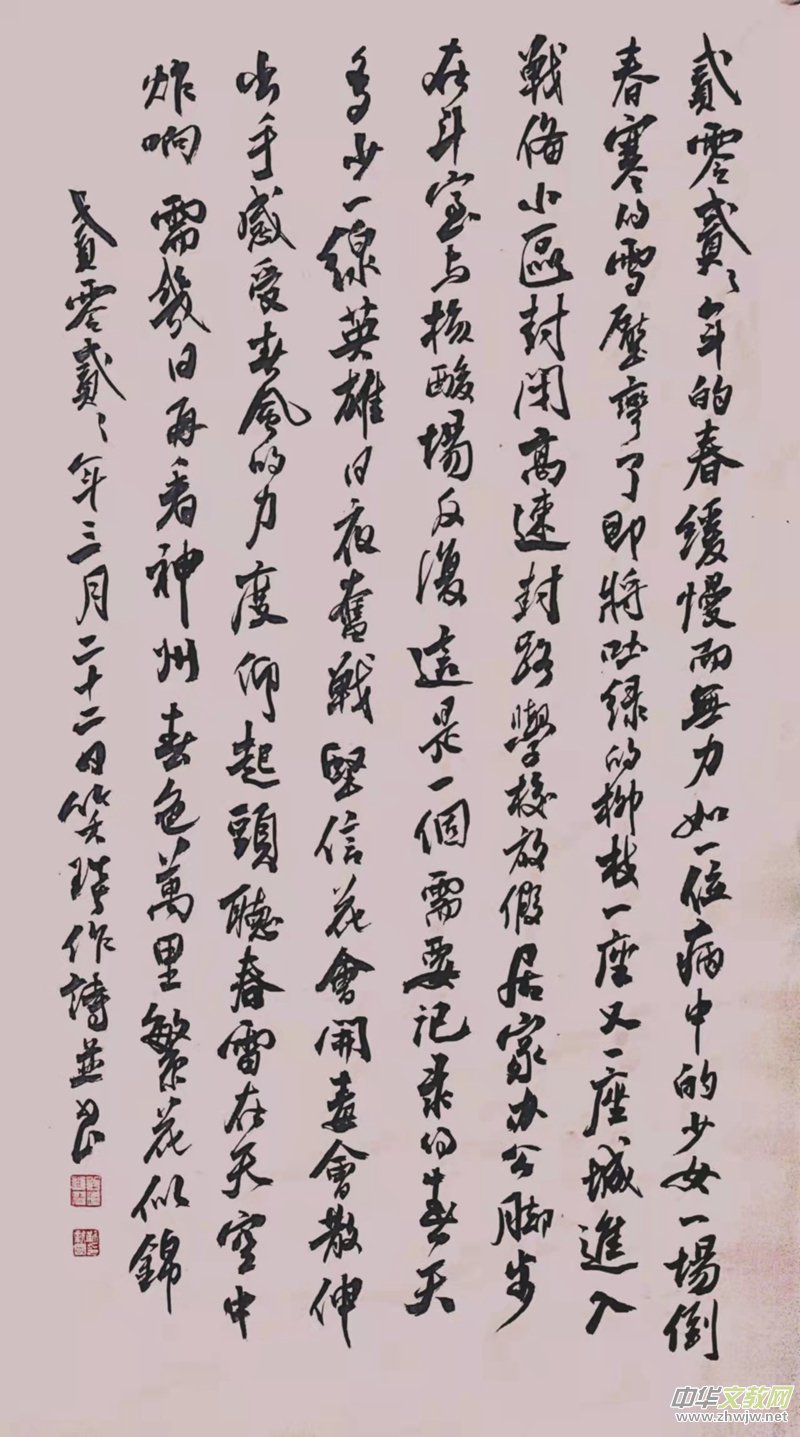 貳零貳〻年的春緩慢而無力如一位病中的少女一場倒
春寒的雪壓彎了即將吐绿的柳枝一座又一座城進入
戰俻小區封闭高速封路學校放假居家办公脚步
在斗室与核酸場反復這是一個需要记录的春天
多少一線英雄日夜奮戰堅信花會開毒會散伸
出手感受春風的力度仰起頭聽春雷在天空中
炸响需幾日再看神州春色萬里繁花似錦
貳零貳〻年三月二十二日笑琪作詩並书
中华文教网
www.zhwjw.net